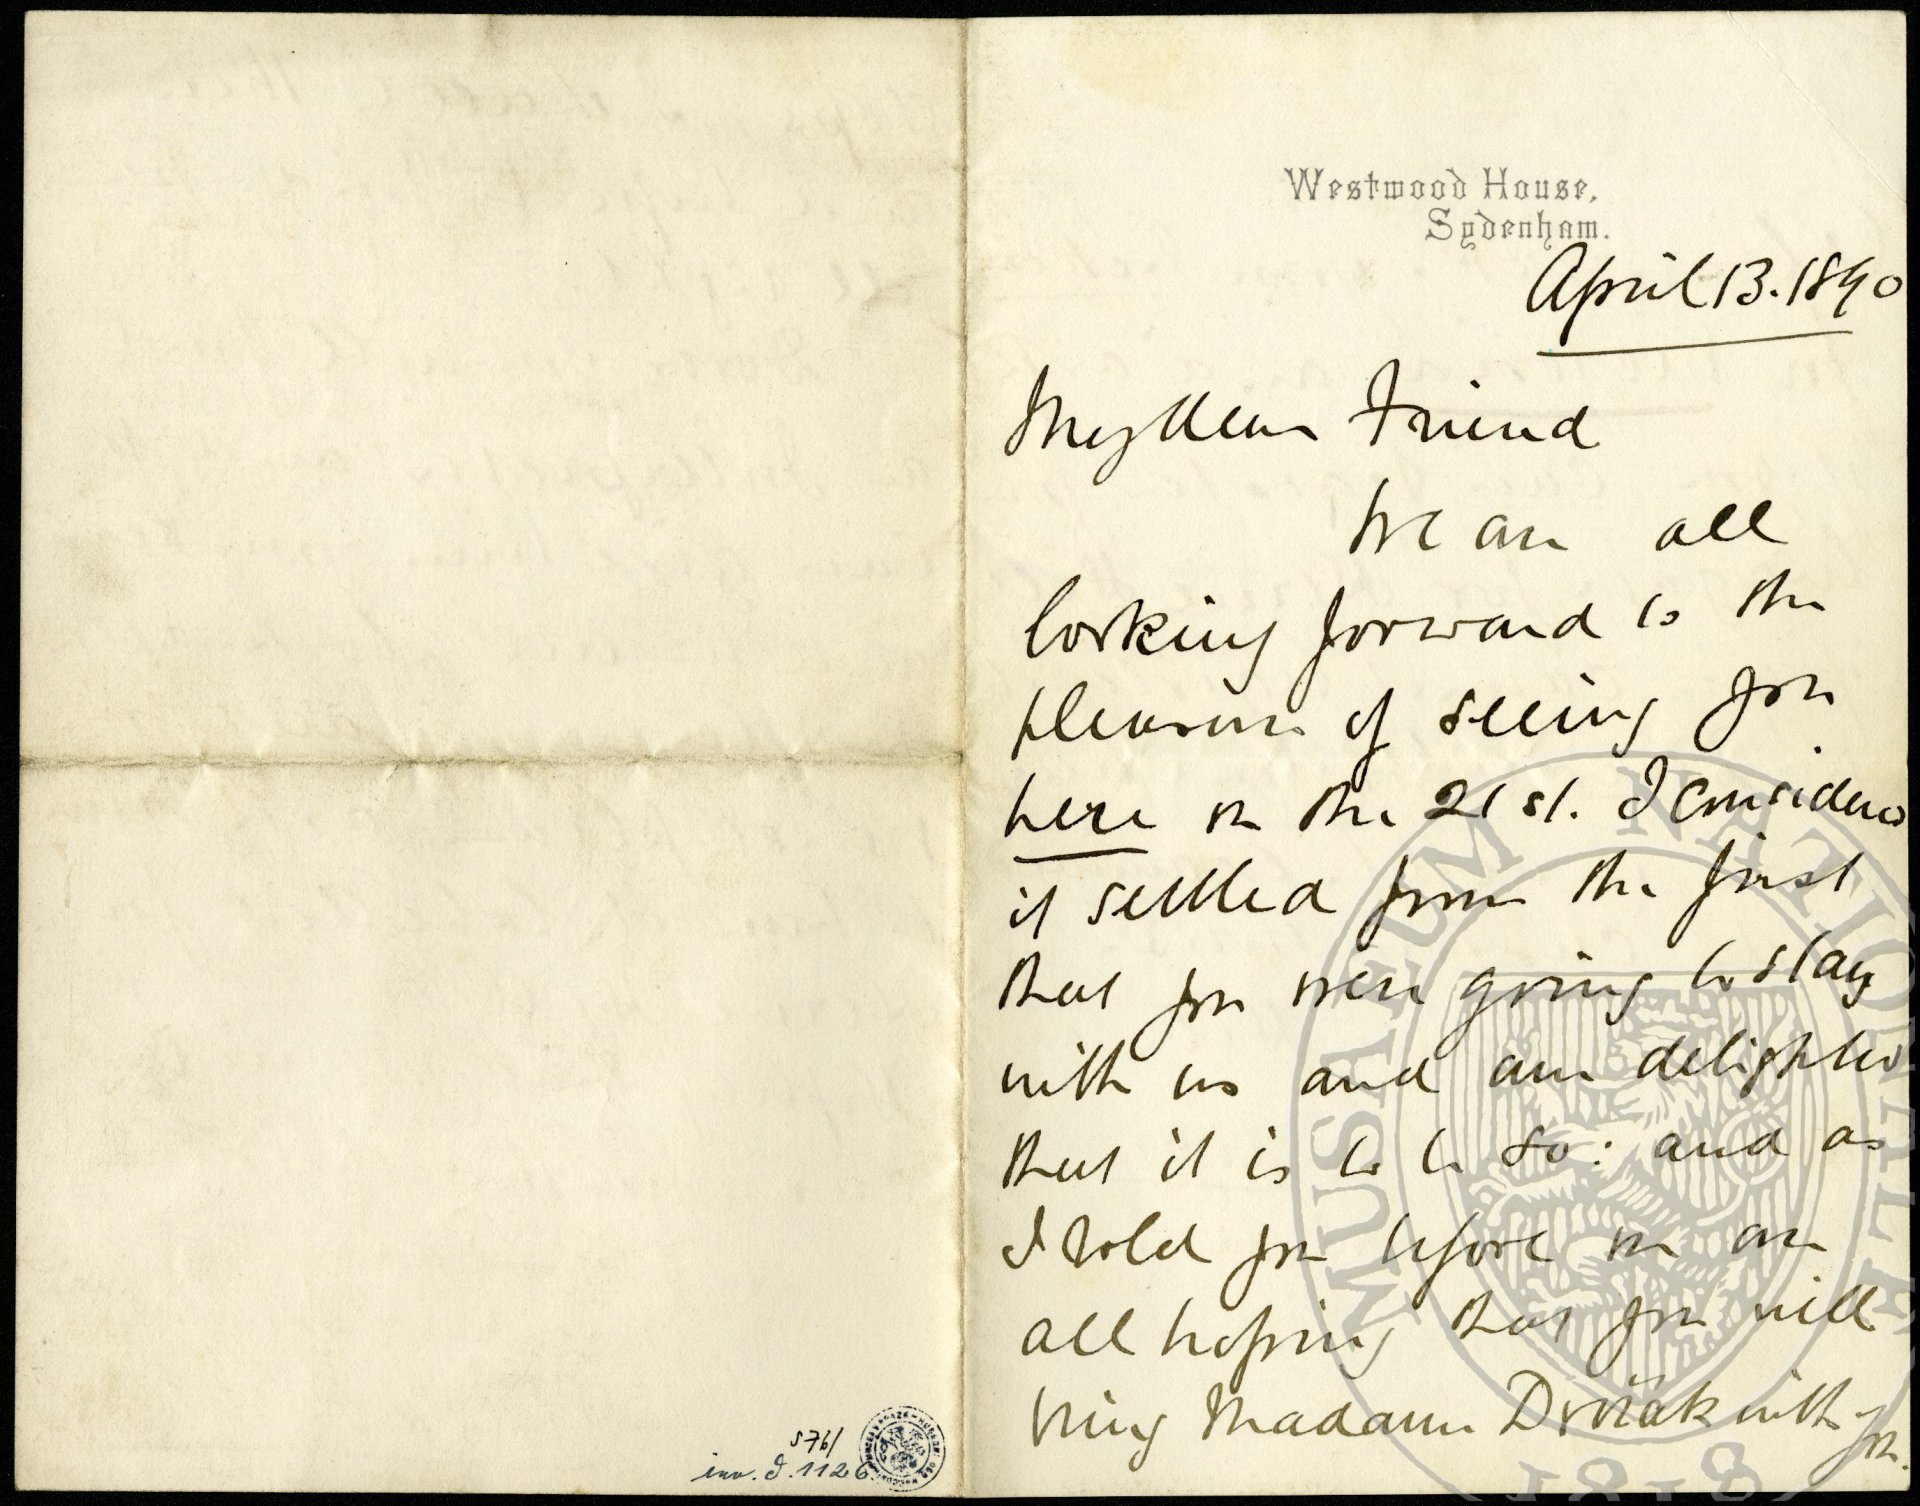 Westwood House,
Sydenham.
April 13. 1890
My dear Friend
We are all
looking forward to the
pleasure of seeing you
here on the 21st. I considered
it settled from the first
that you were going to stay
with us and am delighted
that it is to be so: and as
I told you before we are
all hoping that you will
bring Madame Dvořák with you.
576/
inv. č. 1126
MUSAEUM NATIONALE
1818